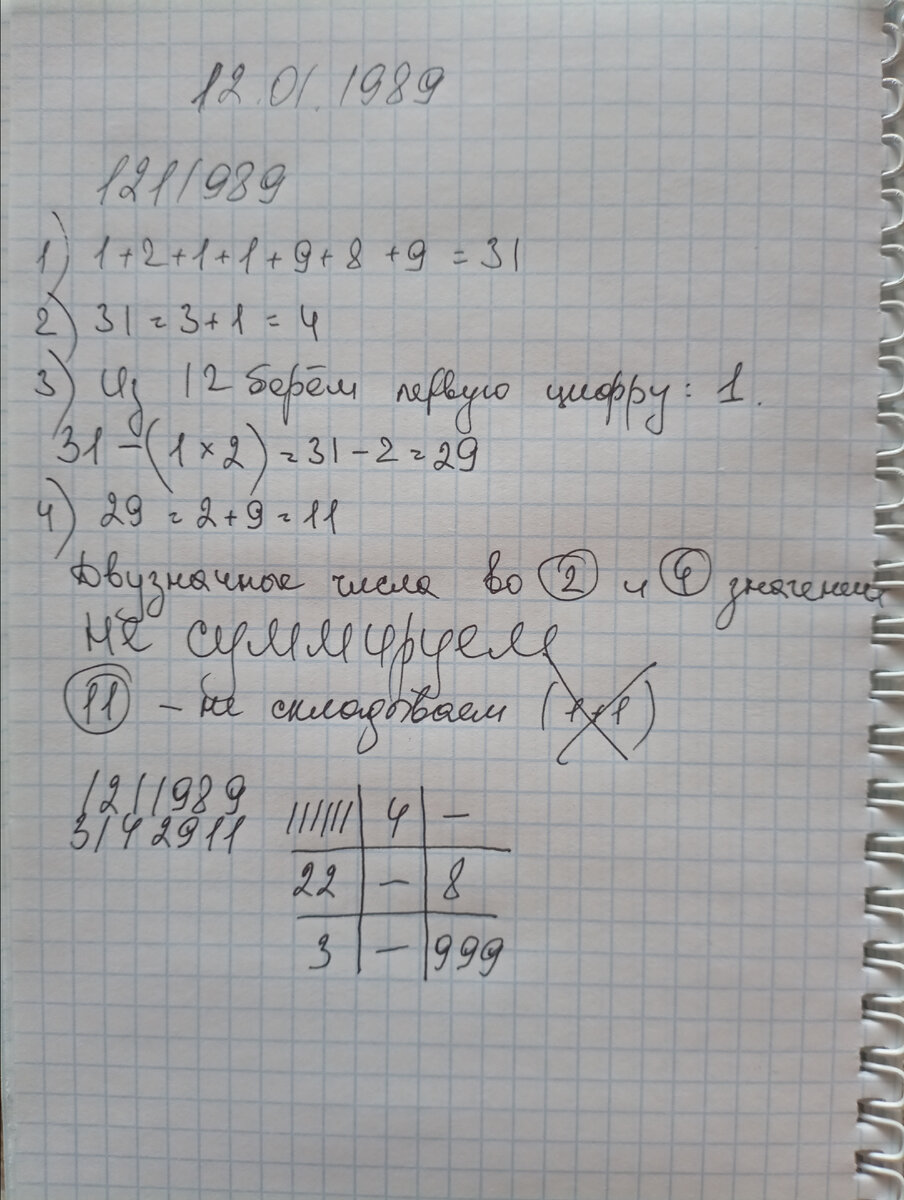 12.01.1989
1211989
1) 1+2+1+1+9+8+9=31
2) 31=3+1=4
3) Из 12 берём первую цифру: 1.
31-(1×2)=31-2=29
4) 29=2+9=11
Двузначные числа во 2 и 4 значении
не суммируем
11 - не складываем (1+1)
1211989
3142911
111111 4 -
22 - 8
3 - 999